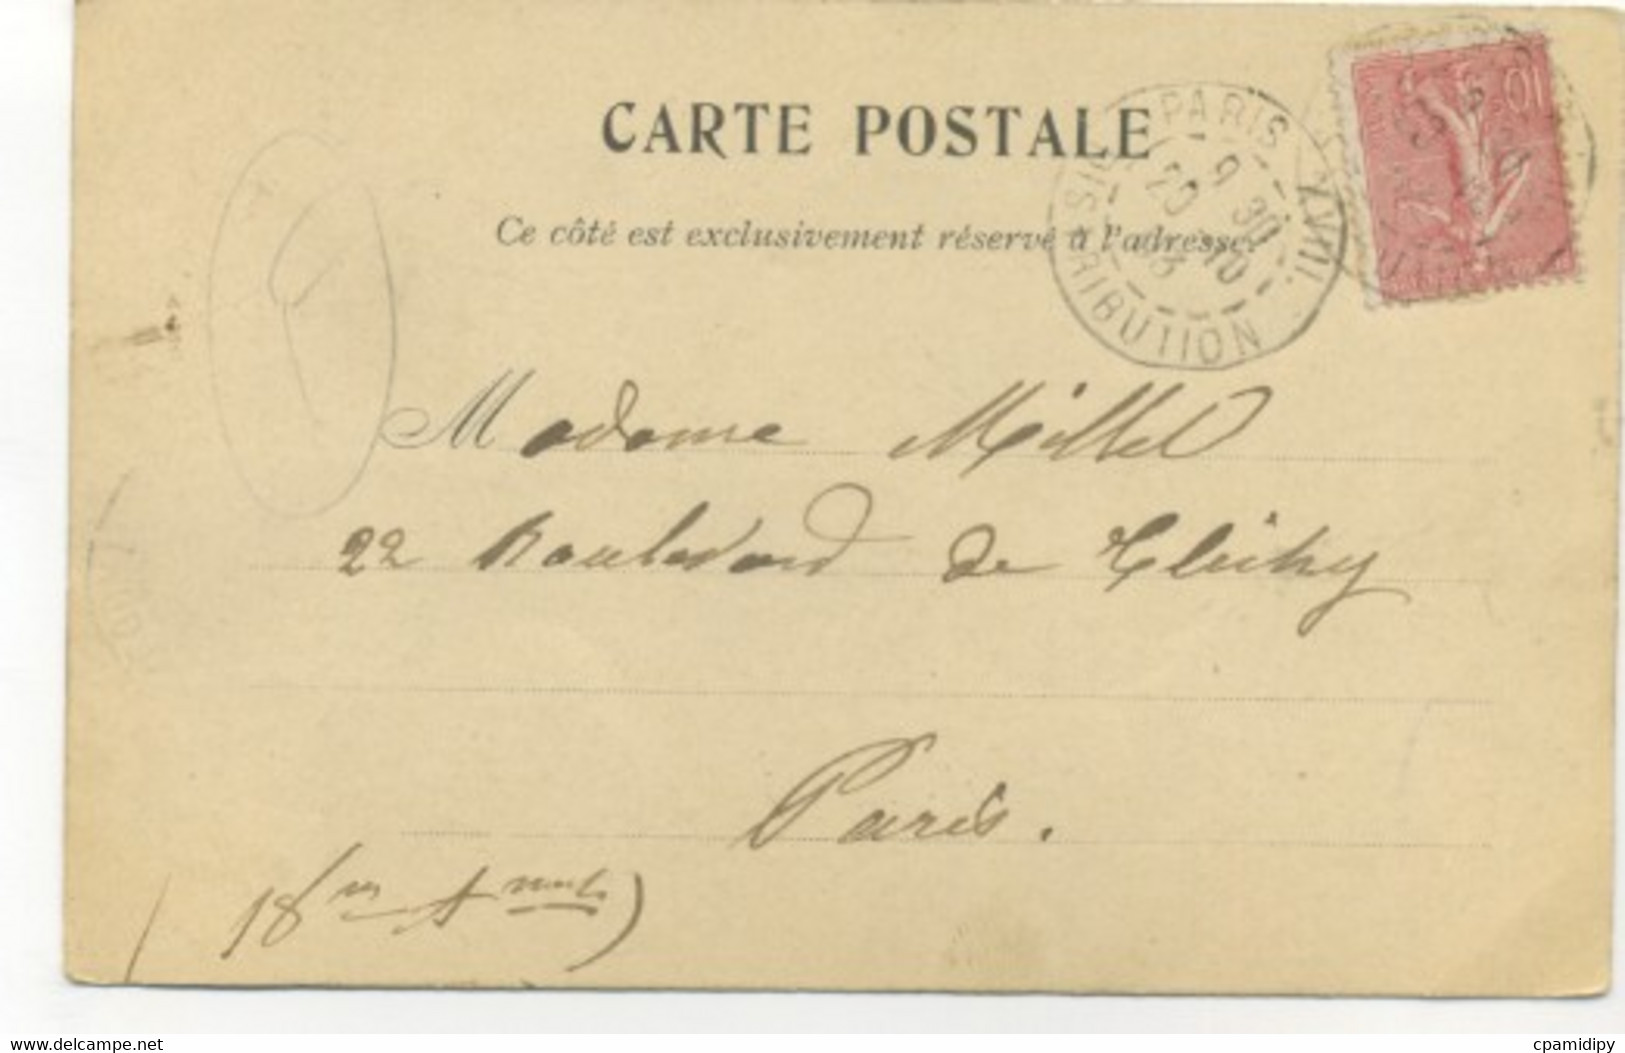 CARTE POSTALE
Ce côté est exclusivement réservé à l'adresse.
PARIS XVIII
DISTRIBUTION
9 30
20 10
10
Madame Millel
22 Boulevard de Clichy
Paris.
(18me Arrondt)
www.delcampe.net
cpamidipy